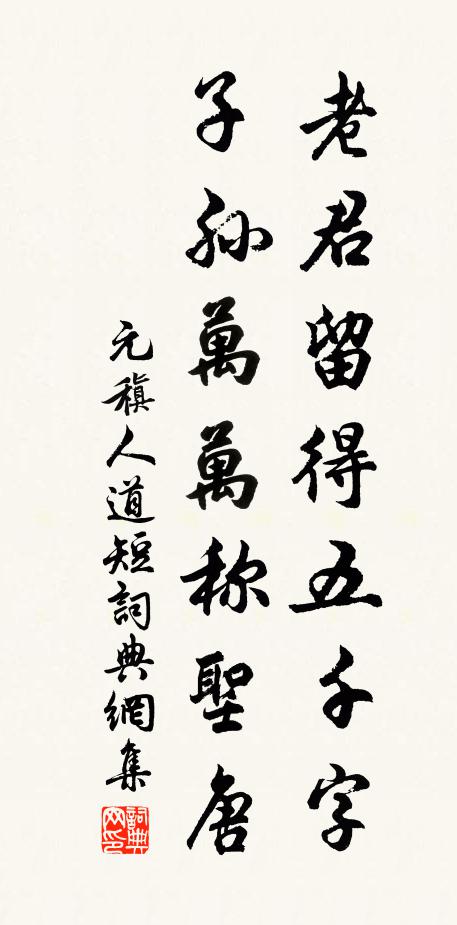 老君留得五千字
子孫萬萬称聖唐
元稹人道短詞典網集
詞典网印